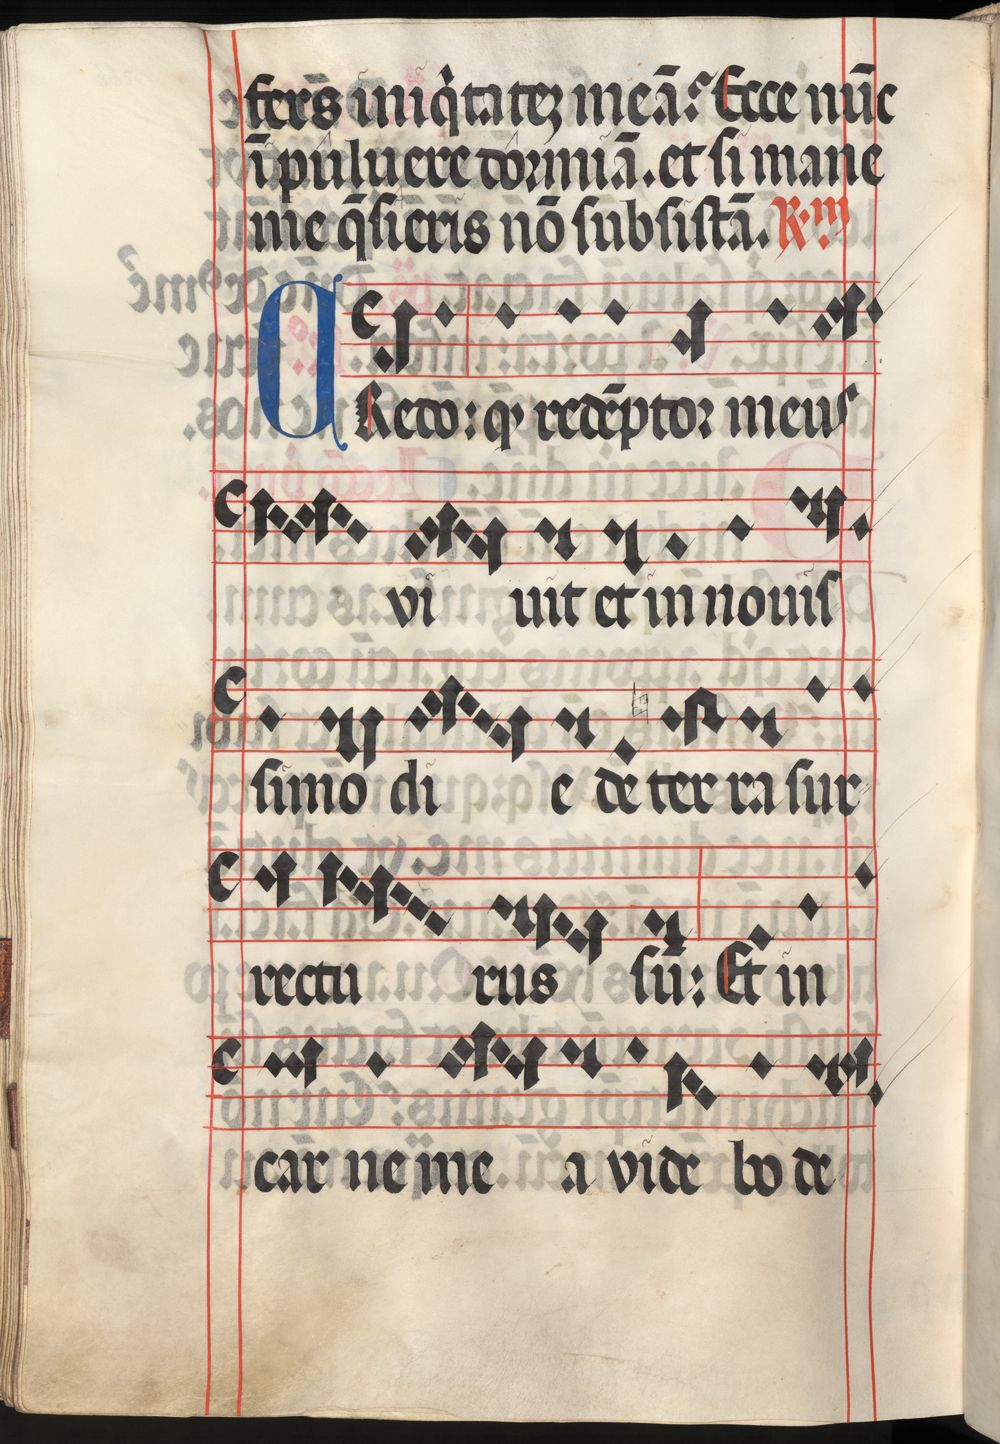 fers̄ iniq̇tateꝫ meā? Ecce nūc
ī puluere dormiā. et si mane
me q̄sieris nō subsistā. R.m
CRedo: qꝫ redēptor meus
vi uit et in nouis
simo di e de ter ra sur
rectu rus sū: Et in
car ne me a vide bo de